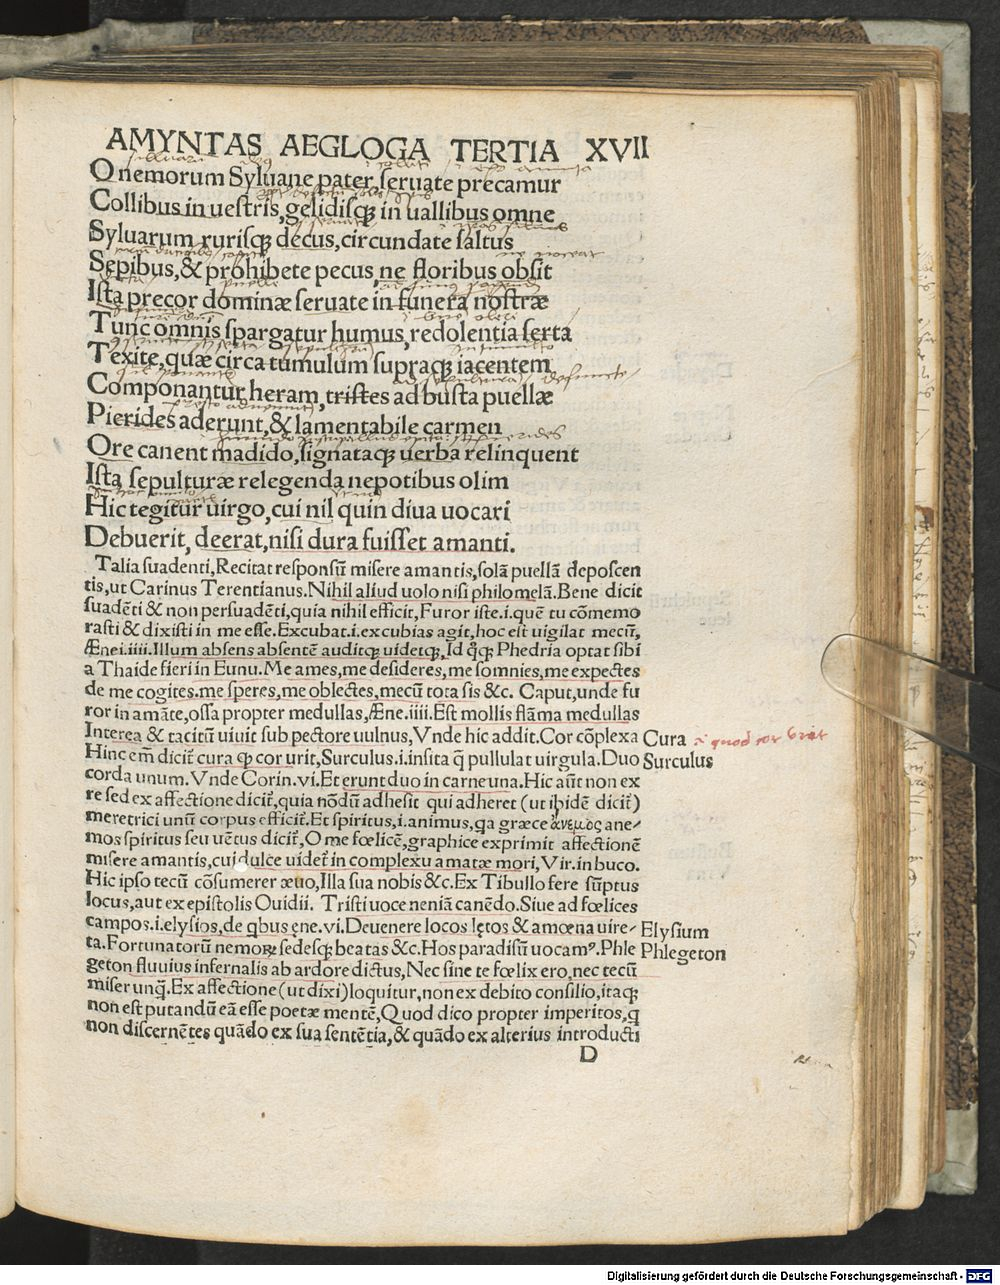 AMYNTAS AEGLOGA TERTIA XVII
O nemorum Syluane pater, seruate precamur
Collibus in uestris, gelidisq; in uallibus omne
Syluarum rurisq; decus, circundate saltus
Sepibus, & prohibete pecus, ne floribus obsit
Ista precor dominæ seruate in funera nostræ
Tunc omnis spargatur humus, redolentia serta
Texite, quæ circa tumulum supraq; iacentem
Componantur heram, tristes ad busta puellæ
Pierides aderunt, & lamentabile carmen
Ore canent madido, signataq; uerba relinquent
Ista sepulturæ relegenda nepotibus olim
Hic tegitur uirgo, cui nil quin diua uocari
Debuerit, deerat, nisi dura fuisset amanti.
Talia suadenti, Recitat responsũ misere amantis, solã puellã deposcen
tis, ut Carinus Terentianus. Nihil aliud uolo nisi philomelã. Bene dicit
suadẽti & non persuadẽti, quia nihil efficit, Furor iste .i. quẽ tu cõmemo
rasti & dixisti in me esse. Excubat .i. excubias agit, hoc est uigilat mecũ,
Ænei. iiii. Illum absens absentẽ auditq; uidetq;, Id q̃q; Phedria optat sibi
a Thaide fieri in Eunu. Me ames, me desideres, me somnies, me expectes
de me cogites. me speres, me oblectes, mecũ tota sis &c. Caput, unde fu
ror in amãte, ossa propter medullas, Æne. iiii. Est mollis flãma medullas
Interea & tacitũ uiuit sub pectore uulnus, Vnde hic addit. Cor cõplexa
Cura
Hinc em̃ dicit̃ cura q; cor urit, Surculus .i. insita q̃ pullulat uirgula. Duo
Surculus
corda unum. Vnde Corin. vi. Et erunt duo in carne una. Hic aũt non ex
re sed ex affectione dicit̃, quia nõdũ adhesit qui adheret (ut ibidẽ dicit̃)
meretrici unũ corpus efficit̃. Et spiritus, .i. animus, qa græce ἄνεμος ane-
mos spiritus seu uẽtus dicit̃, O me fœlicẽ, graphice exprimit affectionẽ
misere amantis, cui dulce uidet̃ in complexu amatæ mori, Vir. in buco.
Hic ipso tecũ cõsumerer æuo, Illa sua nobis &c. Ex Tibullo fere sũptus
locus, aut ex epistolis Ouidii. Tristi uoce neniã canẽdo. Siue ad fœlices
campos .i. elysios, de qbus ęne. vi. Deuenere locos lętos & amœna uire-
Elysium
ta. Fortunatorũ nemoꝝ sedesq; beatas &c. Hos paradisũ uocamꝰ. Phle
Phlegeton
geton fluuius infernalis ab ardore dictus, Nec sine te fœlix ero, nec tecũ
miser unq̃. Ex affectione (ut dixi) loquitur, non ex debito consilio, itaq;
non est putandũ eã esse poetæ mentẽ, Quod dico propter imperitos, q
non discernẽtes quãdo ex sua sentẽtia, & quãdo ex alterius introducti
D
Digitalisierung gefördert durch die Deutsche Forschungsgemeinschaft - DFG